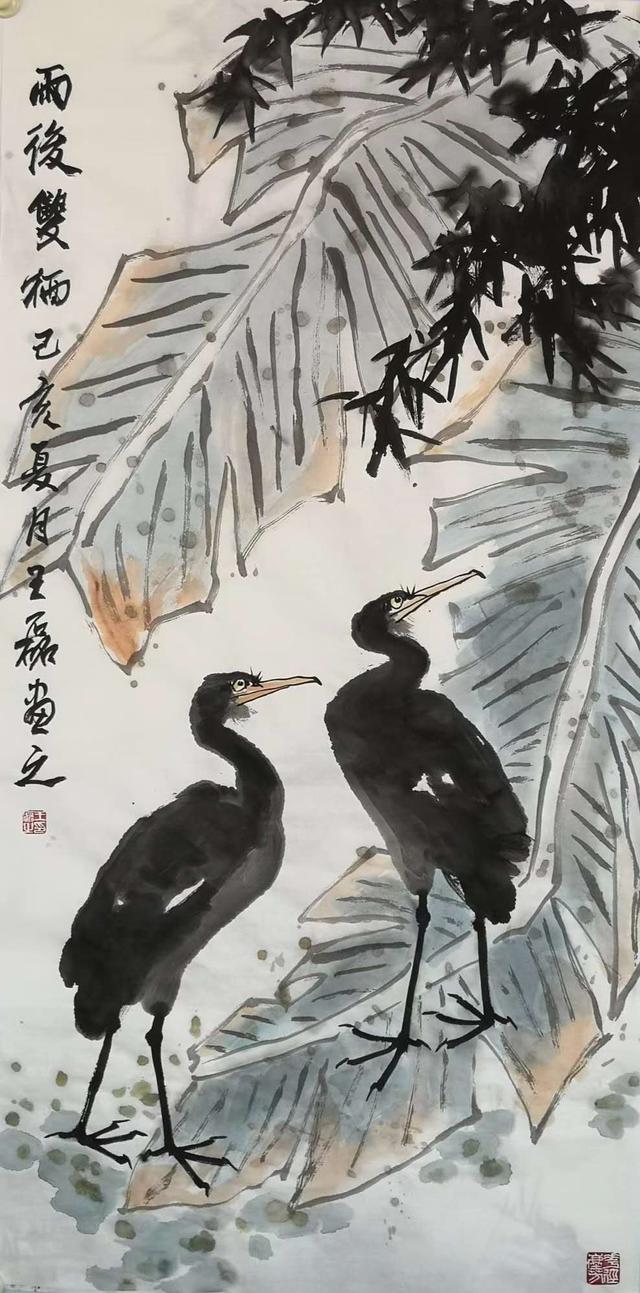 雨後雙栖己亥夏月王磊畫之